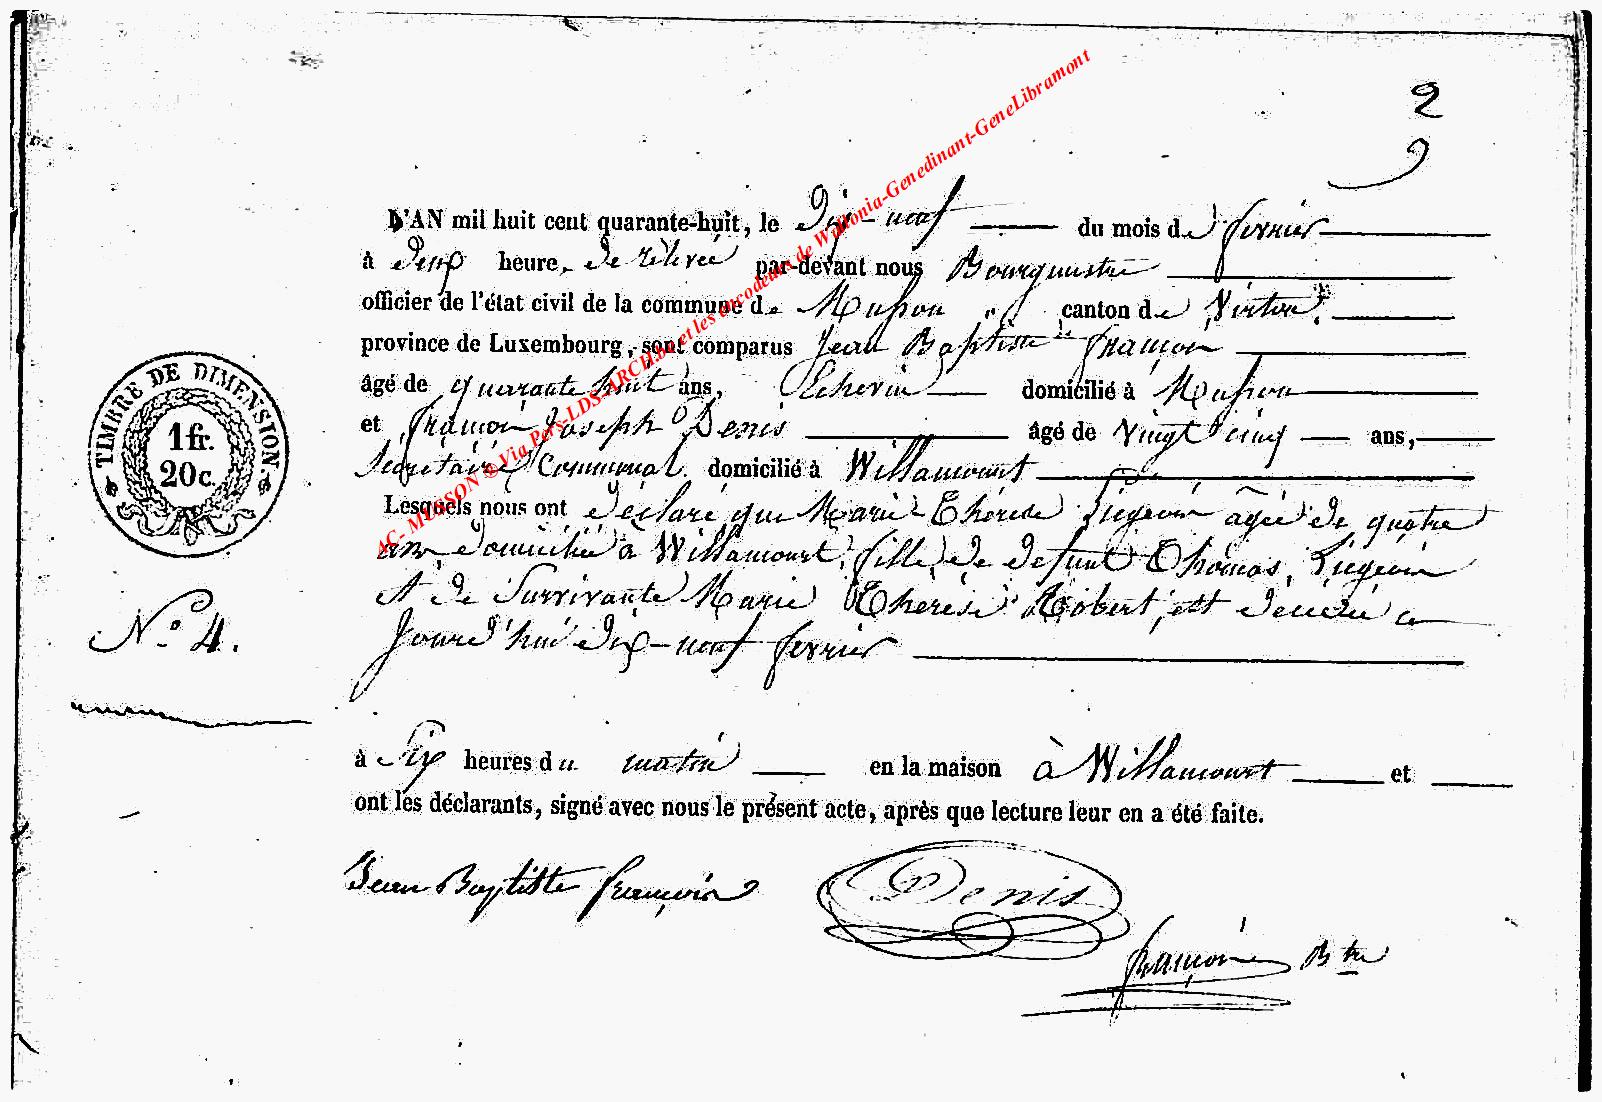 2
2
L'AN mil huit cent quarante-huit, le Dix-neuf du mois de fevrier
à Deux heure de rélevée par-devant nous Bourgmestre
officier de l'état civil de la commune de Musson canton de Virton
province de Luxembourg, sont comparus Jean Baptiste françois
âgé de quarante huit ans, Echevin domicilié à Musson
et françois Joseph Denis âgé de Vingt cinq ans,
Secretaire Communal domicilié à Willancourt
Lesquels nous ont déclaré que Marie Thérèse Liégeois agée de quatre
ans domiciliée à Willancourt, fille de defunt Thomas Liégeois
et de Survivante Marie Thérèse Robert, est decedée ce
Jourd'hui dix-neuf fevrier
à Six heures du matin en la maison à Willancourt et
ont les déclarants, signé avec nous le présent acte, après que lecture leur en a été faite.
Jean Baptiste françois Denis
françois Btre
TIMBRE DE DIMENSION.
1 fr.
20 c.
N° 4.
AC-MUSSON © Via Pers-LDS-ARCH.be et les encodeurs de Wallonia-Genedinant-GeneLibramont